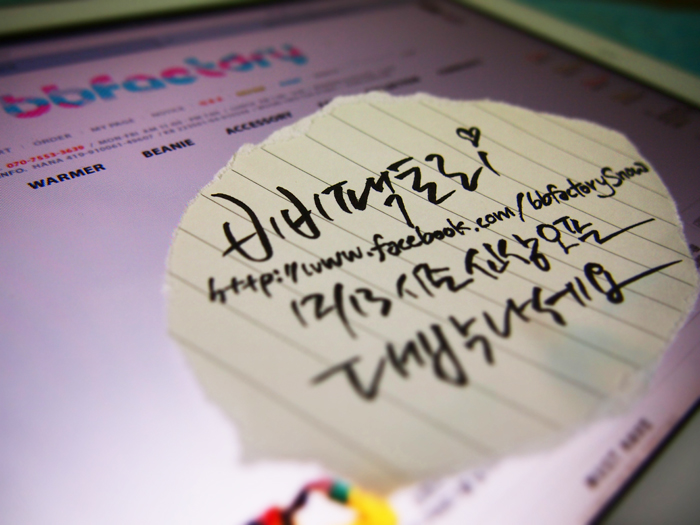 bbfactory
ORDER MY PAGE NOTICE
070-7553-3639 / MON-FRI
INFO. HANA
WARMER BEANIE ACCESSORY
비비팩토리
http://www.facebook.com/bbfactorySnow
12/13 시즌 신상오픈
대박나세요
MUST HAVE